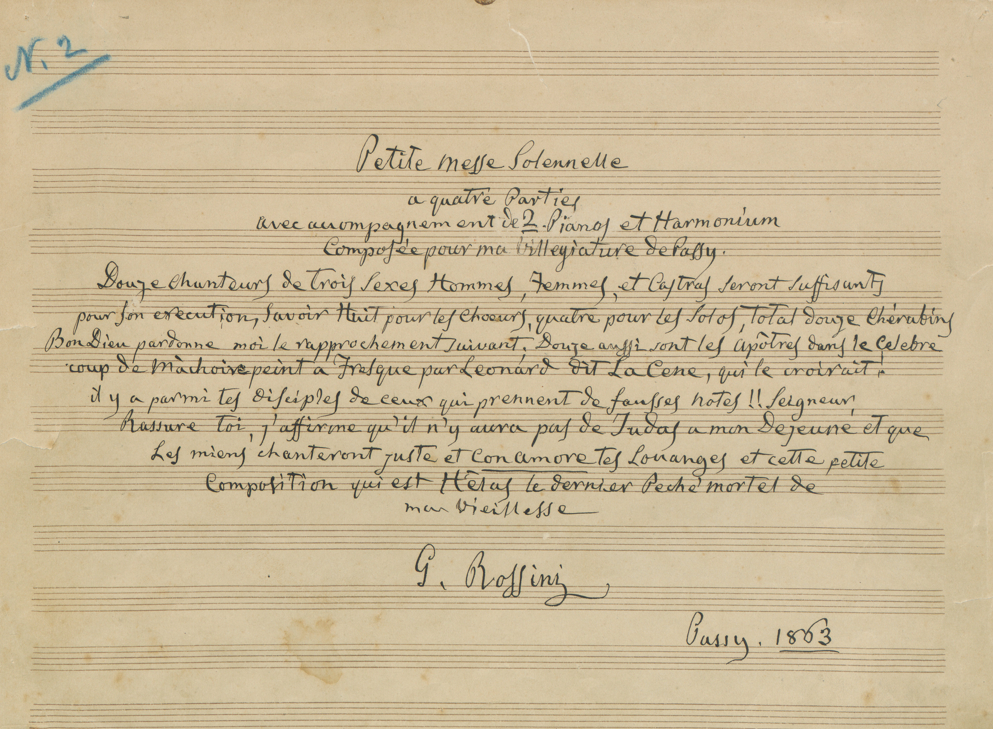 N. 2
Petite messe Solennelle
a quatre Parties
avec accompagnement de 2 Pianos et Harmonium
Composée pour ma villegiature de Passy.
Douze chanteurs de trois Sexes Hommes, Femmes, et Castras seront suffisants
pour son execution, Savoir Huit pour les Choeurs, quatre pour les Solos, total douze Chérubins
Bon Dieu pardonne moi le rapprochement suivant, Douze aussi sont les Apôtres dans le Celebre
coup de Mâchoire peint a Fresque par Léonard dit La Cene, qui le croirait,
il y a parmi tes disciples de ceux qui prennent de fausses notes !! Seigneur,
Rassure toi, j'affirme qu'il n'y aura pas de Judas a mon Dejeuné et que
Les miens chanteront juste et Con amore tes Louanges et cette petite
Composition qui est Hélas le dernier Peché mortel de
ma vieillesse
G. Rossini
Passy. 1863